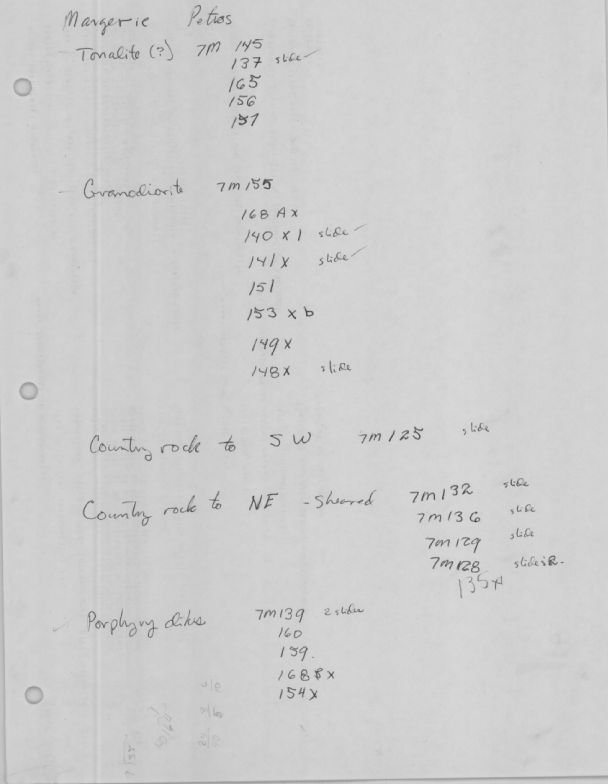 Margerie Petros
- Tonalite (?) 7M 145
137 slide ✓
165
156
157
- Granodiorite 7m 155
168 A x
140 x 1 slide ✓
141 x slide ✓
151
153 x b
149 x
148 x slide
Country rock to SW 7m 125 slide
Country rock to NE - Sheared 7m 132 slide
7m 136 slide
7m 129 slide
7m 128
135x
Porphyry dikes 7m 139 2 slides
160
159.
168 B x
154 x